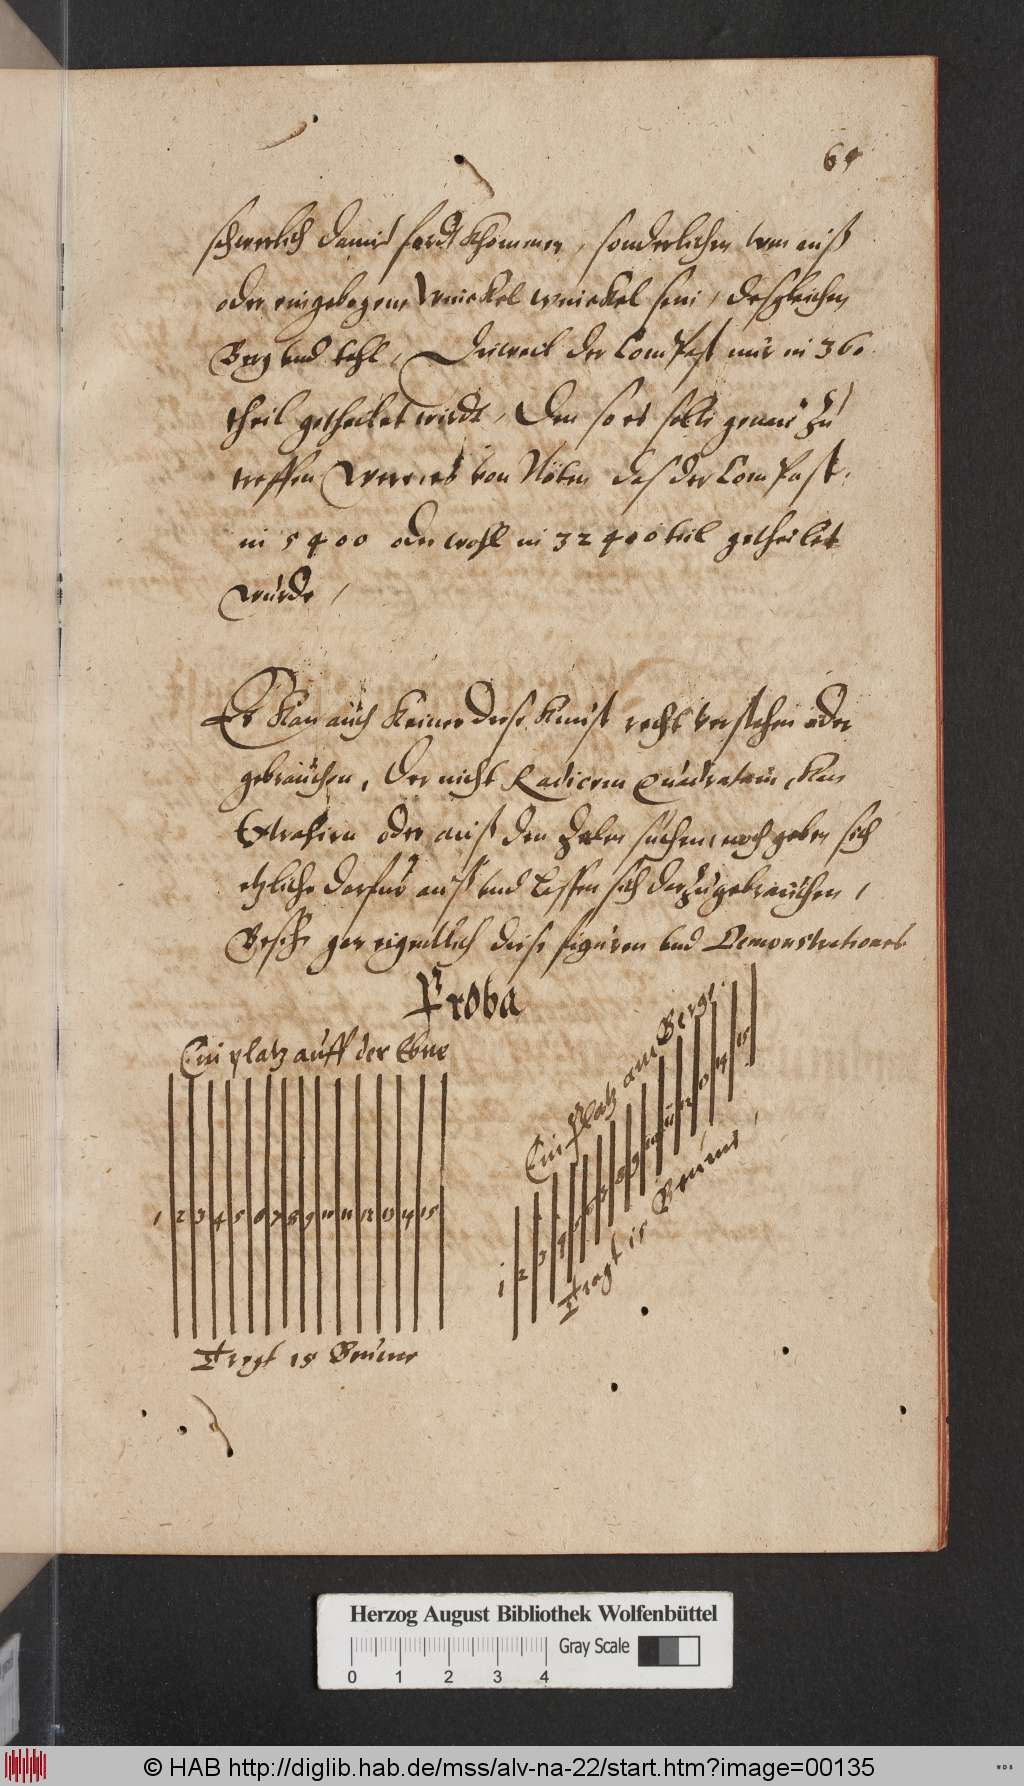 64
schwerlich damit fordt khommen, sonderlichen wen auß
oder eingebogene Winckel winckel sein, desgleichen
Berg vnd tahl, Dieweil der ComPast nur in 360
theil getheilet wirdt, Den so es solte genau zu
treffen Were es von Nöten das der ComPast
in 5400 oder wohl in 32400 teil getheilet
wurde,
Es Kan auch Keiner diese Kunst recht verstehen oder
gebrauchen, der nicht Radicem Quadratam Kan
Extrahirn oder auß den Zalen suchen, noch geben sich
etzliche darfur auß vnd lassen sich darzu gebrauchen,
Besihe gar eigendtlich diese figuren vnd Demonstrationes
Proba
Ein platz auff der Ebne
1 2 3 4 5 6 7 8 9 10 11 12 13 14 15
Tregt 15 Beume
Ein Platz am Berge
1 2 3 4 5 6 7 8 9 10 11 12 13 14 15
Tregt 15 Beume
Herzog August Bibliothek Wolfenbüttel
Gray Scale
0 1 2 3 4
© HAB http://diglib.hab.de/mss/alv-na-22/start.htm?image=00135